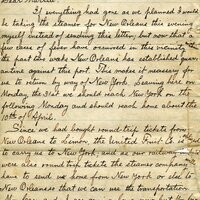 Dear
If everything had gone as we planned I would
be taking the steamer for New Orleans this evening
myself instead of sending this letter, but now that a
few cases of fever have occurred in this vicinity
the past two weeks New Orleans has established quar-
antine against this port. This makes it necessary for
us to return by way of New York. Leaving here on
Monday the 31st we should reach New York on the
following Monday and should reach home about the
10th of April.
Since we had bought round-trip tickets from
New Orleans to Limon, the United Fruit Co. is
to carry us to New York, and as our railway
were also round trip tickets the steamer company
have to send us home from New York or else to
New Orleans so that we can use the transportation